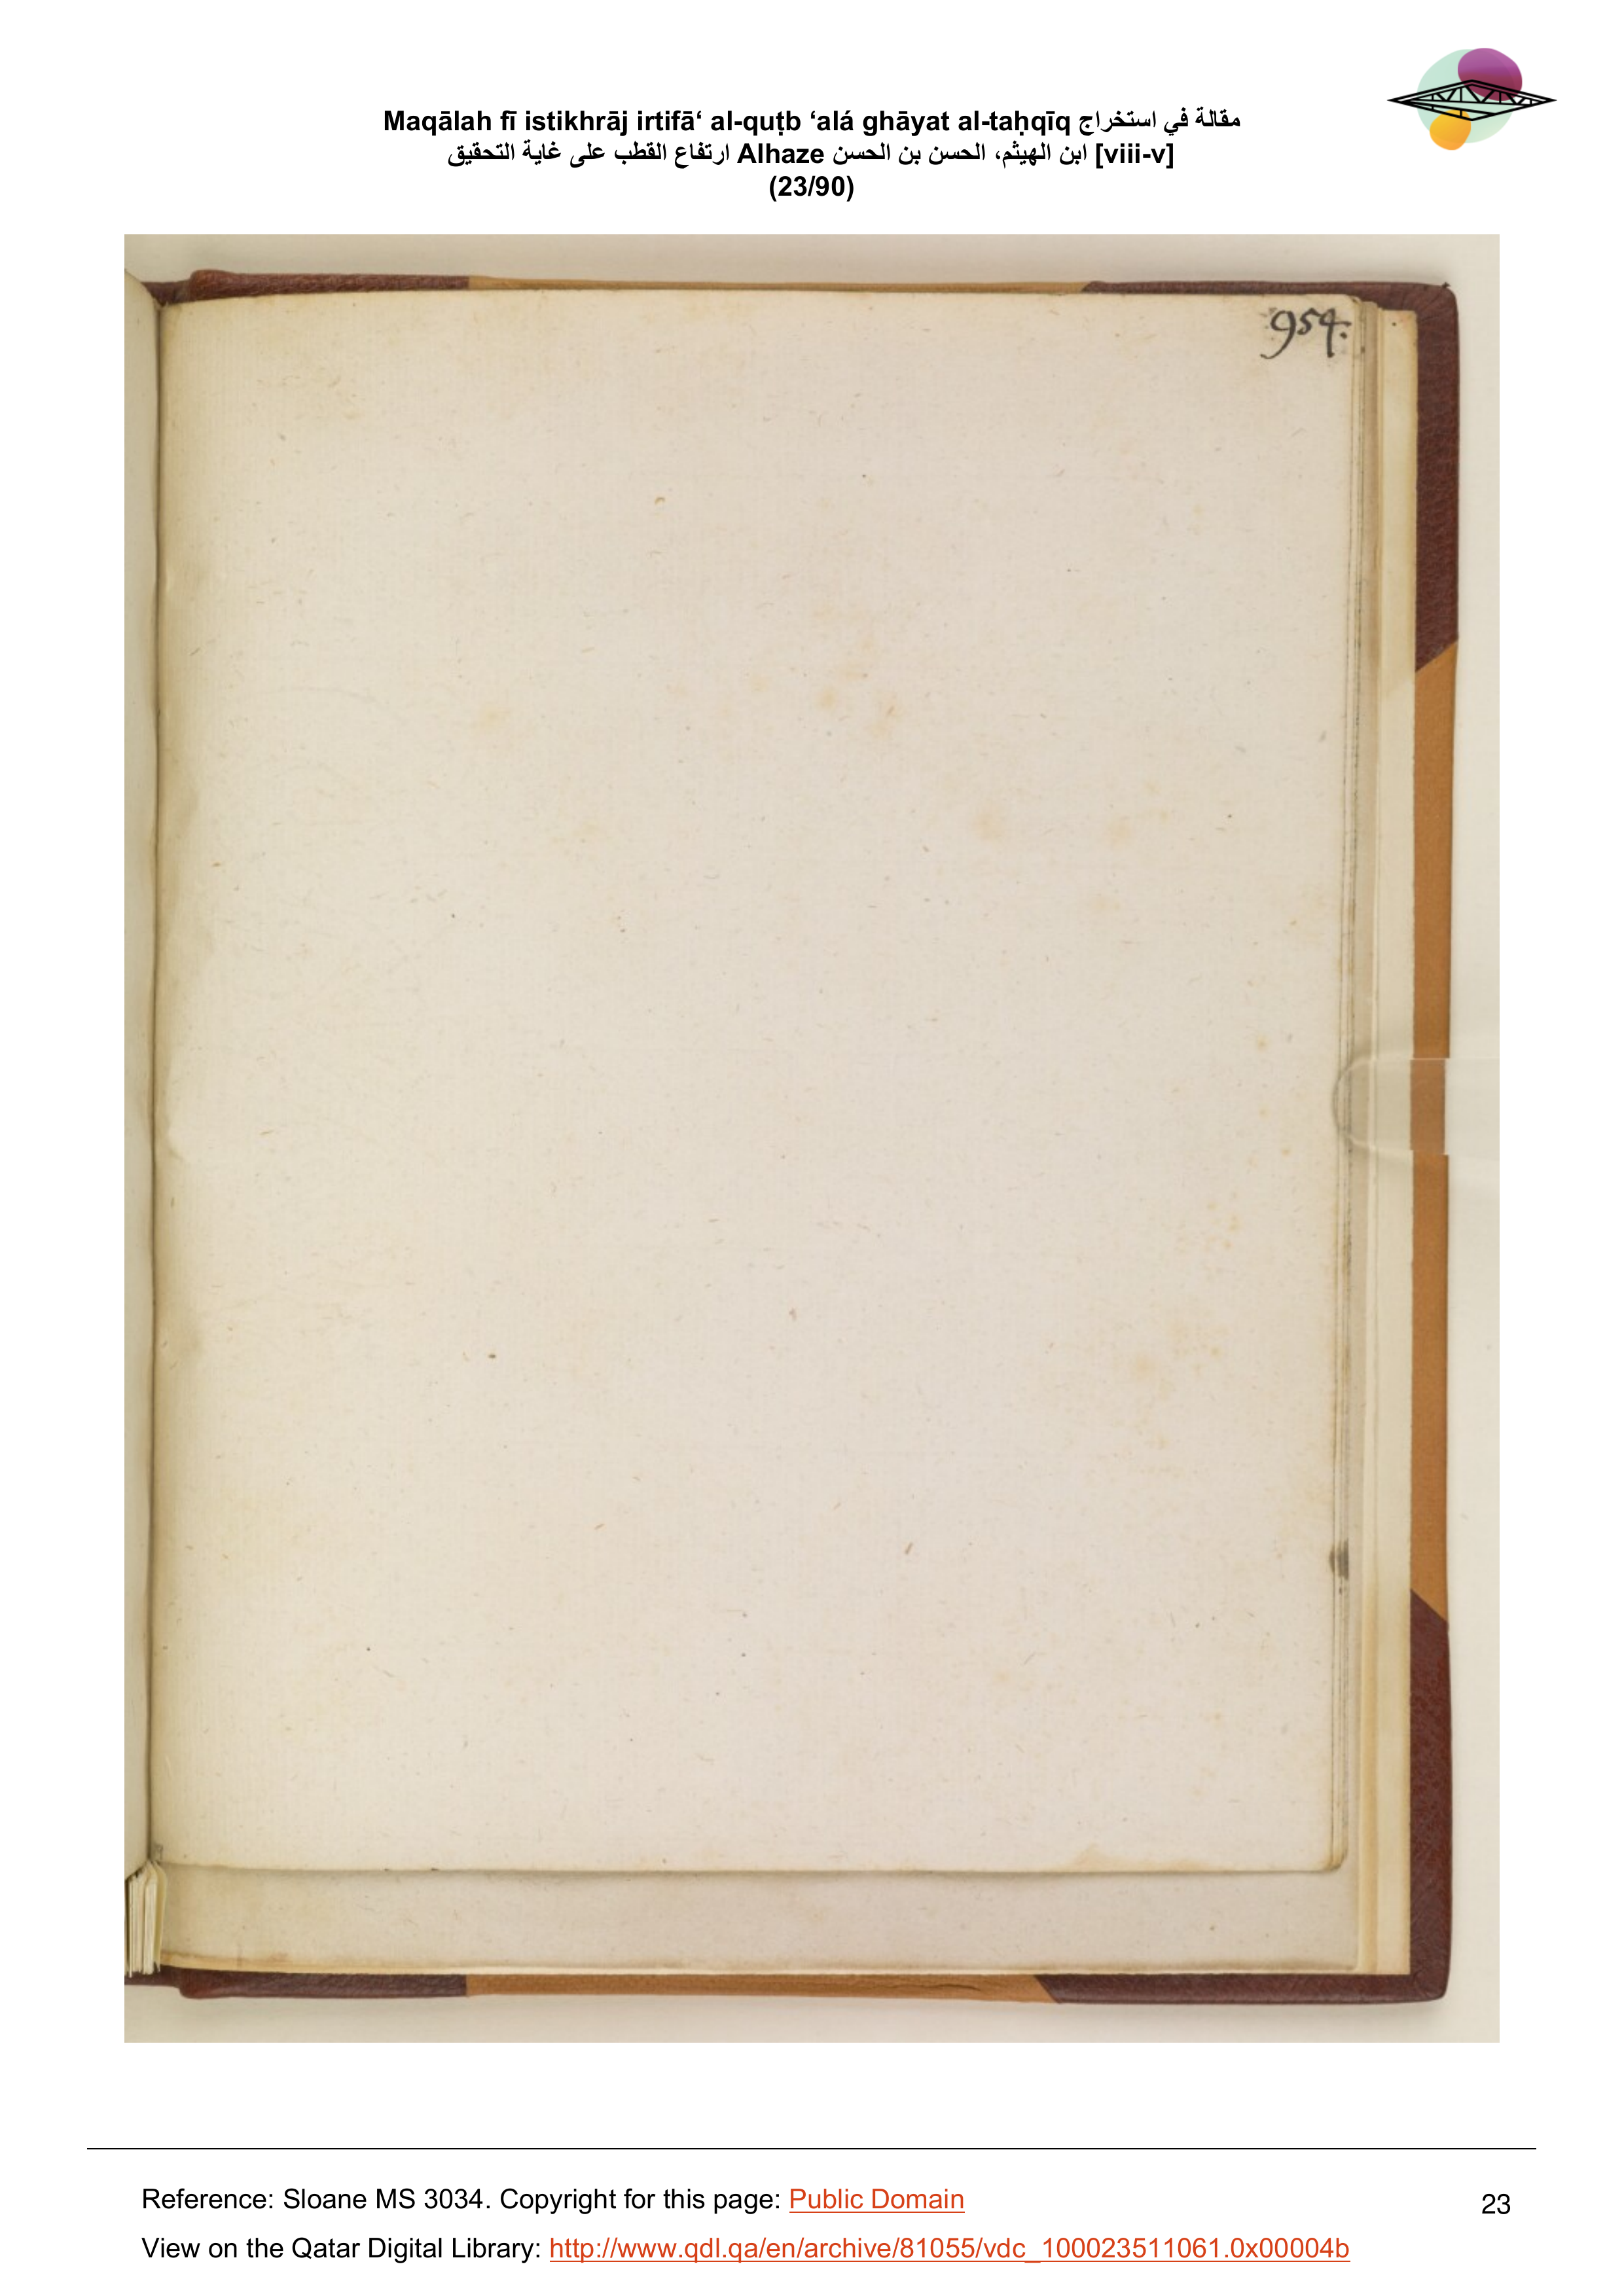 Maqālah fī istikhrāj irtifā‘ al-quṭb ‘alá ghāyat al-taḥqīq مقالة في استخراج
ارتفاع القطب على غاية التحقيق Alhaze ابن الهيثم، الحسن بن الحسن [viii-v]
(23/90)
954.
Reference: Sloane MS 3034. Copyright for this page: Public Domain
23
View on the Qatar Digital Library: http://www.qdl.qa/en/archive/81055/vdc_100023511061.0x00004b